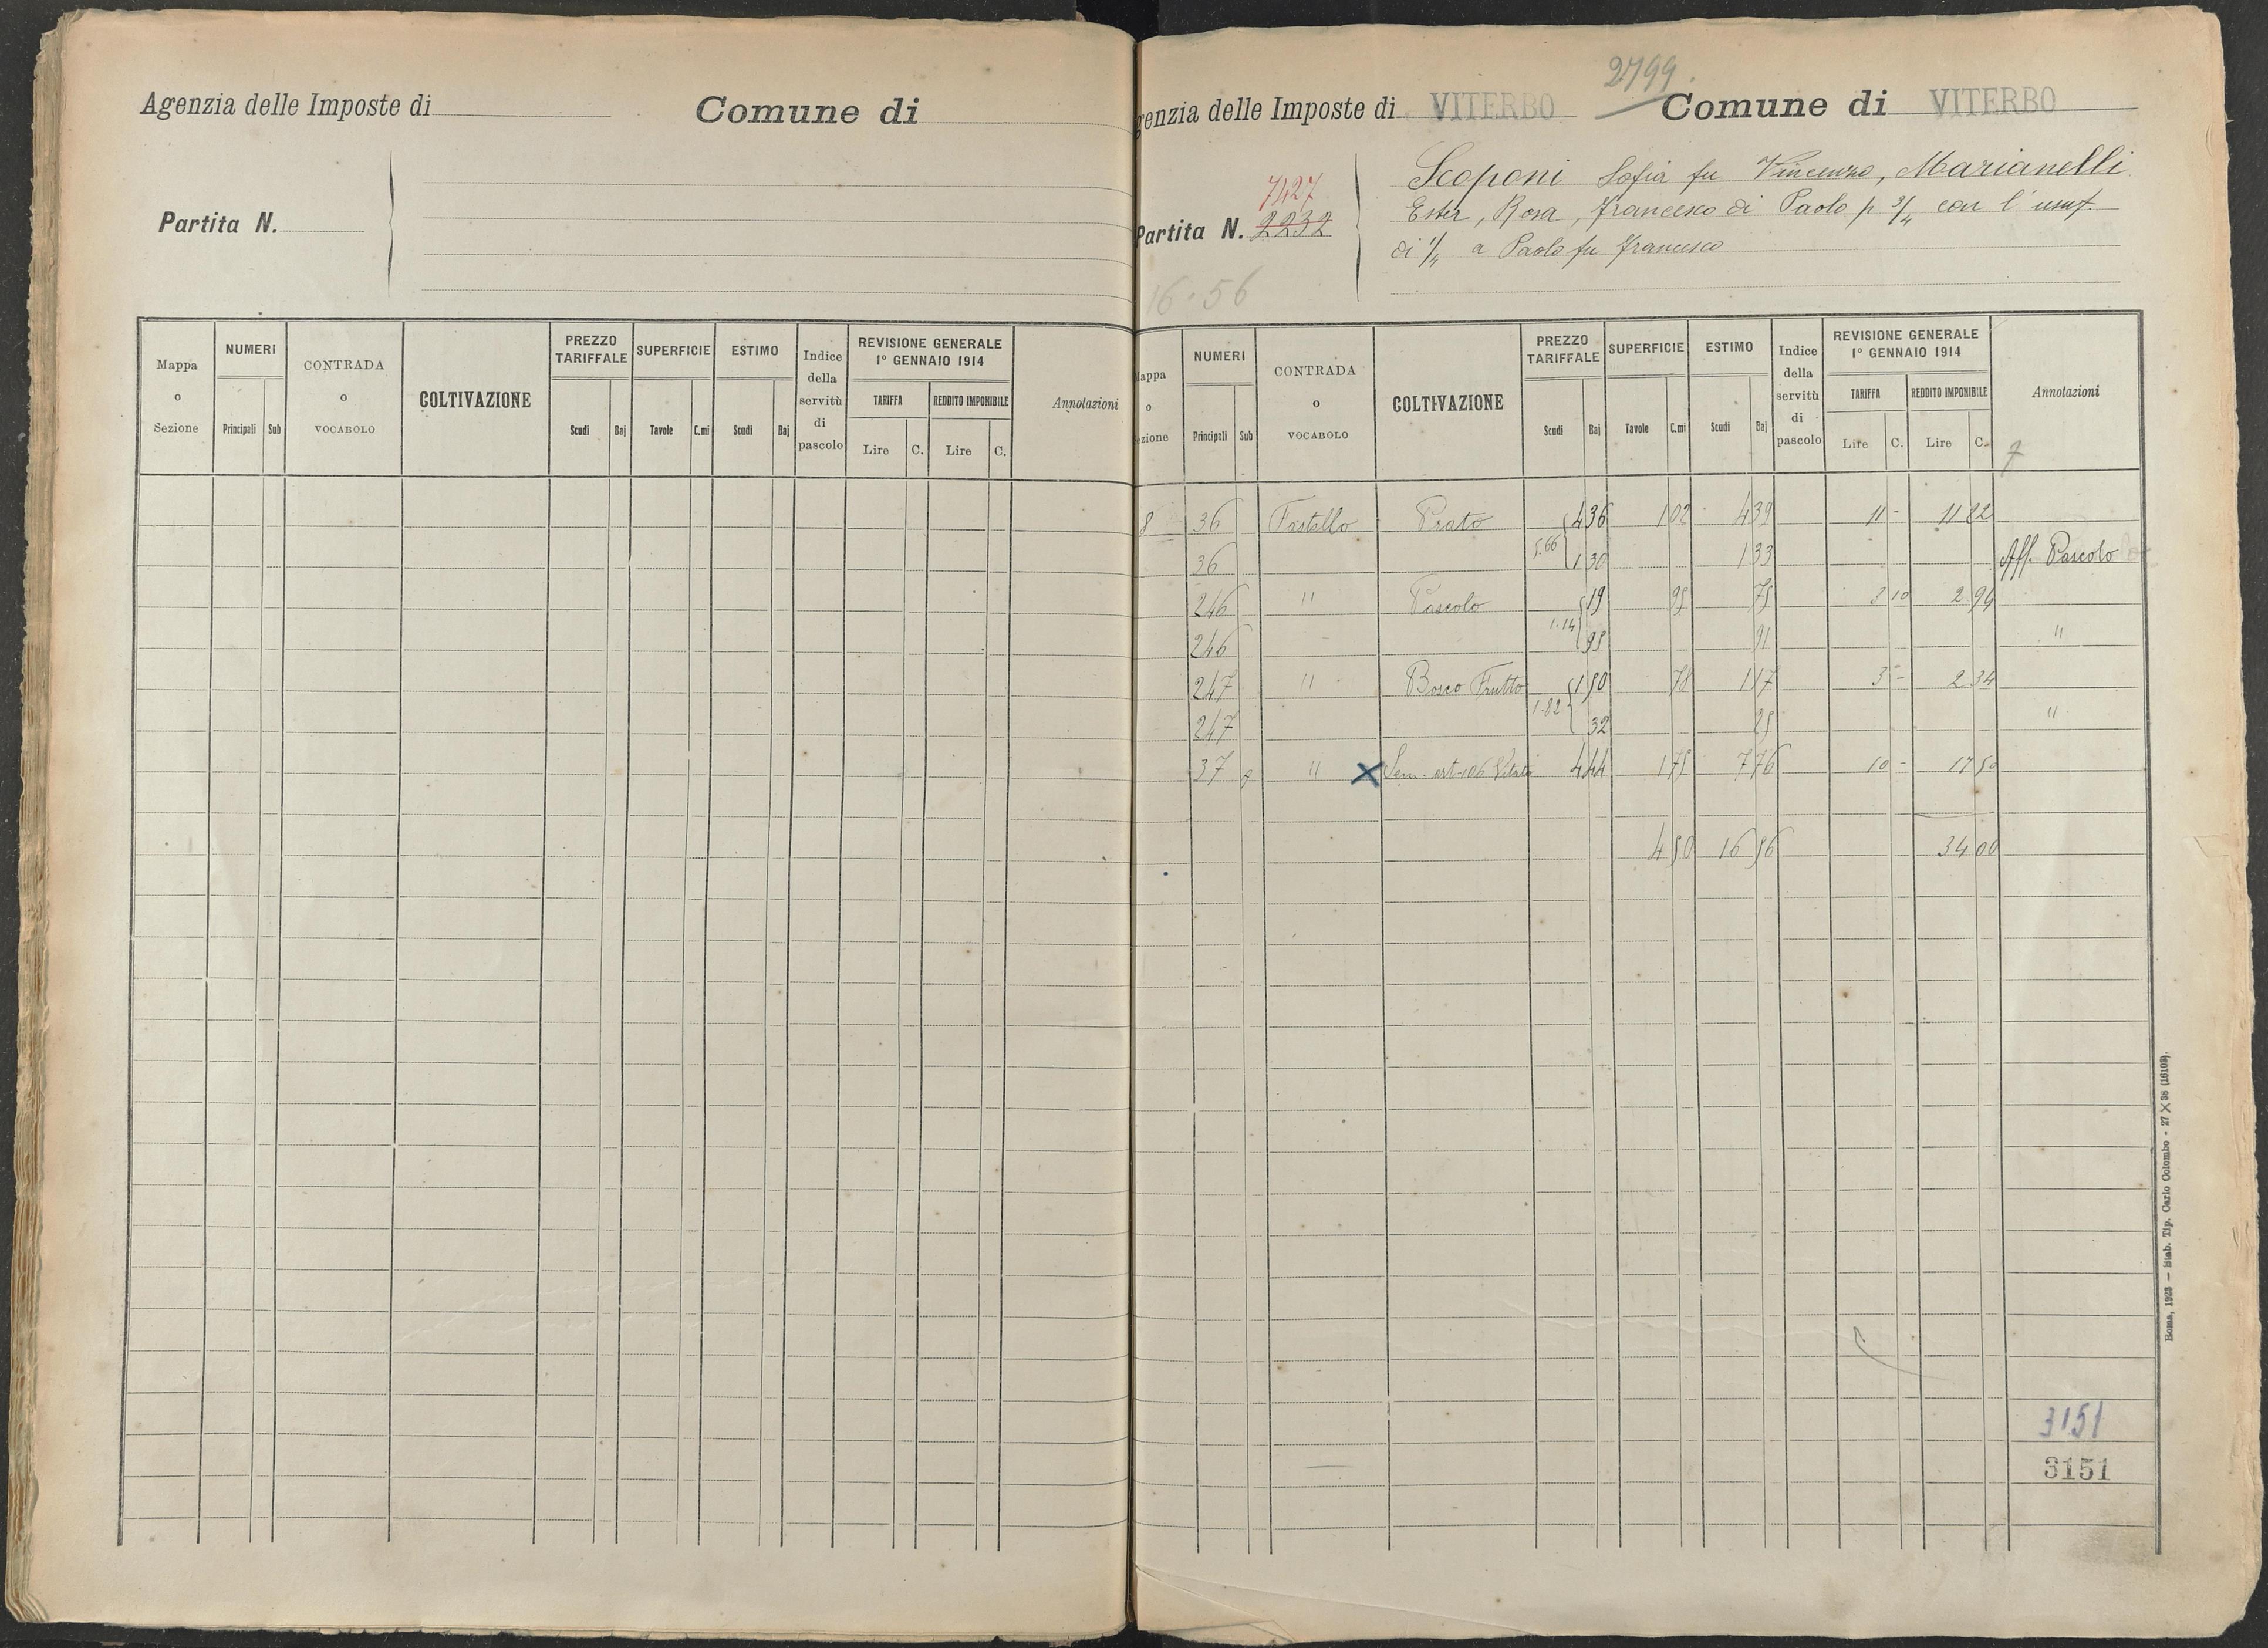 Agenzia delle Imposte di
Comune di
Partita N.
Mappa o Sezione
NUMERI
Principali Sub
CONTRADA o VOCABOLO
COLTIVAZIONE
PREZZO TARIFFALE
Scudi Baj
SUPERFICIE
Tavole C.mi
ESTIMO
Scudi Baj
Indice della servitù di pascolo
REVISIONE GENERALE
1° GENNAIO 1914
TARIFFA
Lire C.
REDDITO IMPONIBILE
Lire C.
Annotazioni
2799.
genzia delle Imposte di VITERBO Comune di VITERBO
7427
Partita N. 2232
16.56
Scoponi Sofia fu Vincenzo, Marianelli
Ester, Rosa, Francesco di Paolo p 3/4 con l'usuf.
di 1/4 a Paolo fu Francesco
Mappa o ezione
NUMERI
Principali Sub
CONTRADA o VOCABOLO
COLTIVAZIONE
PREZZO TARIFFALE
Scudi Baj
SUPERFICIE
Tavole C.mi
ESTIMO
Scudi Baj
Indice della servitù di pascolo
REVISIONE GENERALE
1° GENNAIO 1914
TARIFFA
Lire C.
REDDITO IMPONIBILE
Lire C.
Annotazioni
7
8 36 Fastello Prato 4 36 1 02 4 39 11 - 11 22
36 5.66 1 30 1 33 Aff. Pascolo
246 " Pascolo 19 95 75 3 10 2 94
246 1.14 95 91 "
247 " Bosco Frutto 1 50 78 1 17 3 - 2 34
247 1.82 32 25 "
37 " X Sem. art 106 Vitato 4 44 1 75 7 76 10 - 17 50
4 50 16 56 34 00
3151
3151
Roma, 1923 — Stab. Tip. Carlo Colombo - 27 X 38 (16102).